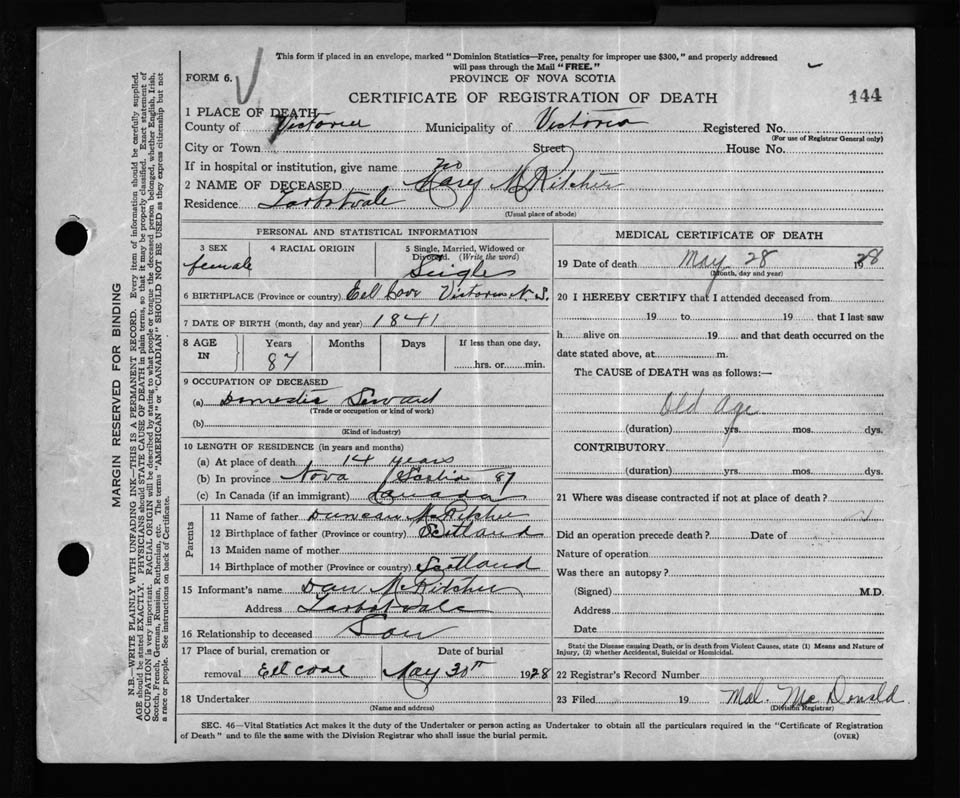 This form if placed in an envelope, marked "Dominion Statistics—Free, penalty for improper use $300," and properly addressed
will pass through the Mail "FREE."
FORM 6.
PROVINCE OF NOVA SCOTIA
CERTIFICATE OF REGISTRATION OF DEATH
144
1 PLACE OF DEATH
County of Victoria Municipality of Victoria Registered No.
(For use of Registrar General only)
City or Town Street House No.
If in hospital or institution, give name no
2 NAME OF DECEASED Mary McRitchie
Residence Tarbotvale
(Usual place of abode)
PERSONAL AND STATISTICAL INFORMATION
3 SEX
female
4 RACIAL ORIGIN
5 Single, Married, Widowed or
Divorced. (Write the word)
Single
6 BIRTHPLACE (Province or country) Eel Cove Victoria N.S.
7 DATE OF BIRTH (month, day and year) 1841
8 AGE IN
Years Months Days If less than one day,
87 hrs. or min.
9 OCCUPATION OF DECEASED
(a) Domestic
(Trade or occupation or kind of work)
(b)
(Kind of industry)
10 LENGTH OF RESIDENCE (in years and months)
(a) At place of death 14 years
(b) In province Nova Scotia 87
(c) In Canada (if an immigrant) Canada
Parents
11 Name of father Duncan McRitchie
12 Birthplace of father (Province or country) Scotland
13 Maiden name of mother
14 Birthplace of mother (Province or country) Scotland
15 Informant's name Dan McRitchie
Address Tarbotvale
16 Relationship to deceased Son
17 Place of burial, cremation or Date of burial
removal Eel cove May 30th 1928
18 Undertaker
(Name and address)
MEDICAL CERTIFICATE OF DEATH
19 Date of death May 28 1928
(Month, day and year)
20 I HEREBY CERTIFY that I attended deceased from
19 to 19 that I last saw
h alive on 19 and that death occurred on the
date stated above, at m.
The CAUSE of DEATH was as follows:—
Old Age
(duration) yrs. mos. dys.
CONTRIBUTORY
(duration) yrs. mos. dys.
21 Where was disease contracted if not at place of death?
Did an operation precede death? Date of
Nature of operation
Was there an autopsy?
(Signed) M.D.
Address
Date
State the Disease causing Death, or in death from Violent Causes, state (1) Means and Nature of
Injury, (2) whether Accidental, Suicidal or Homicidal.
22 Registrar's Record Number
23 Filed 19 Mal. MacDonald
(Division Registrar)
SEC. 46—Vital Statistics Act makes it the duty of the Undertaker or person acting as Undertaker to obtain all the particulars required in the "Certificate of Registration
of Death" and to file the same with the Division Registrar who shall issue the burial permit.
(OVER)
MARGIN RESERVED FOR BINDING
N.B.—WRITE PLAINLY WITH UNFADING INK—THIS IS A PERMANENT RECORD. Every item of information should be carefully supplied.
AGE should be stated EXACTLY. PHYSICIANS should STATE CAUSE OF DEATH in plain terms, so that it may be properly classified. Exact statement of
OCCUPATION is very important. RACIAL ORIGIN will be described by stating to what people or tongue the deceased person belonged, whether English, Irish,
Scotch, French, German, Russian, Ruthenian, etc. The terms "AMERICAN" or "CANADIAN" SHOULD NOT BE USED as they express citizenship but not
a race or people. See instructions on back of Certificate.